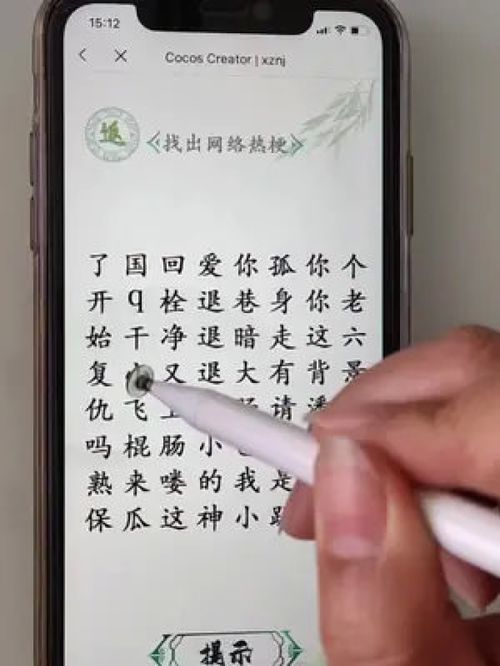 15:12
Cocos Creator | xznj
找出网络热梗
了国回爱你孤你个
开q栓退巷身你老
始干净退暗走这六
复又退大有背景
仇飞请潘
吗棍肠小
熟来喽的我是
保瓜这神小
提示